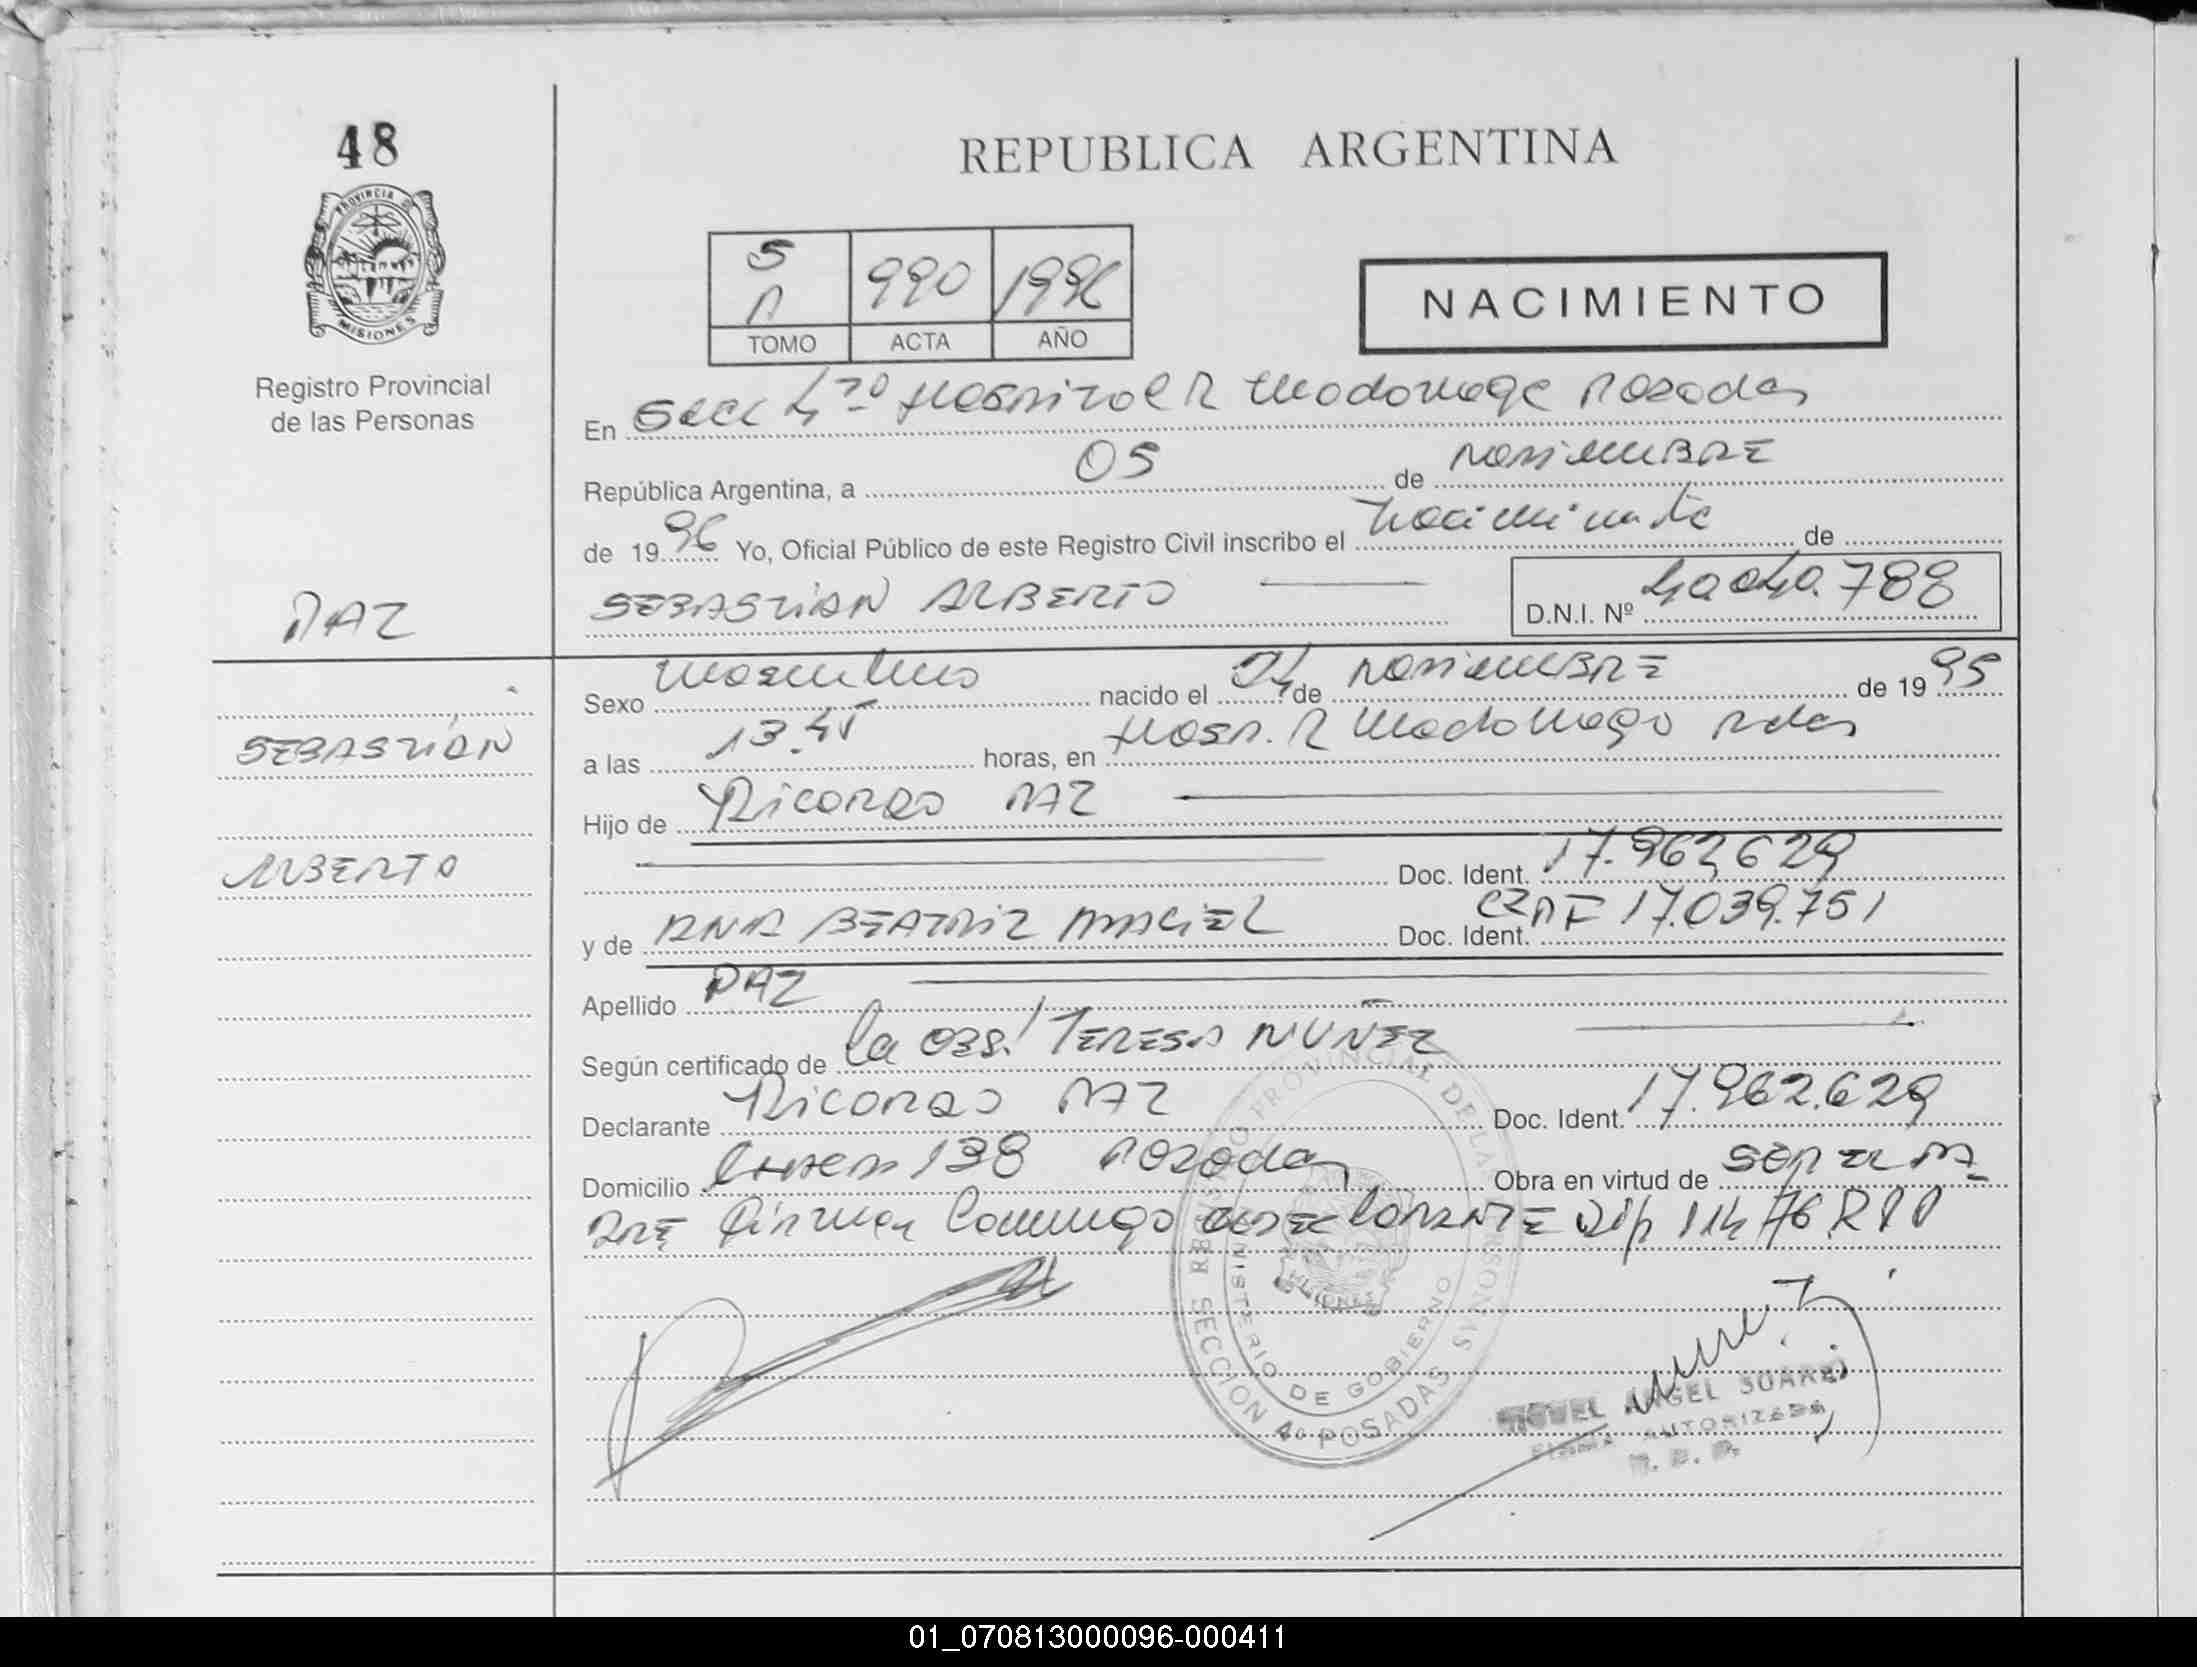 48
PROVINCIA DE
MISIONES
Registro Provincial
de las Personas
PAZ
SEBASTIÁN
ALBERTO
REPUBLICA ARGENTINA
5
A
990
1996
TOMO ACTA AÑO
NACIMIENTO
En Secc 4ta Hospital R Madariaga Posadas
República Argentina, a 05 de NOVIEMBRE
de 1996 Yo, Oficial Público de este Registro Civil inscribo el nacimiento de
SEBASTIÁN ALBERTO D.N.I. Nº 40.040.788
Sexo Masculino nacido el 24 de NOVIEMBRE de 1995
a las 13.45 horas, en Hosp. R Madariaga Pdas
Hijo de Ricardo PAZ
Doc. Ident. 17.962,629
y de ANA BEATRIZ MACIEL Doc. Ident. 17.039.751
Apellido PAZ
Según certificado de la OBS! TERESA NUÑEZ
Declarante Ricardo PAZ Doc. Ident. 17.962.629
Domicilio 138 Posadas Obra en virtud de SER EL PA-
DRE Firman Conmigo DECLARANTE
REGISTRO PROVINCIAL DE LAS PERSONAS
MINISTERIO DE GOBIERNO
MISIONES
SECCION 4a POSADAS
MIGUEL ANGEL SUAREZ
FIRMA AUTORIZADA
01_070813000096-000411